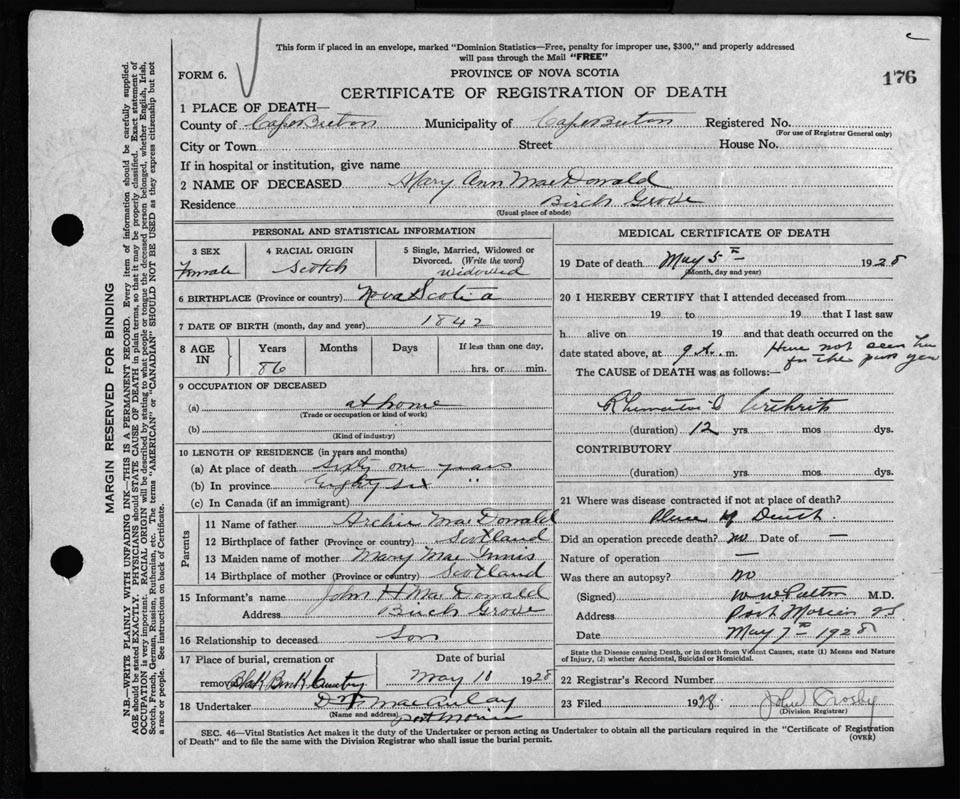 This form if placed in an envelope, marked "Dominion Statistics—Free, penalty for improper use, $300," and properly addressed
will pass through the Mail "FREE"
FORM 6.
PROVINCE OF NOVA SCOTIA
176
CERTIFICATE OF REGISTRATION OF DEATH
1 PLACE OF DEATH—
County of Cape Breton Municipality of Cape Breton Registered No.
(For use of Registrar General only)
City or Town Street House No.
If in hospital or institution, give name
2 NAME OF DECEASED Mary Ann MacDonald
Residence Birch Grove
(Usual place of abode)
PERSONAL AND STATISTICAL INFORMATION
3 SEX
Female
4 RACIAL ORIGIN
Scotch
5 Single, Married, Widowed or
Divorced. (Write the word)
widowed
6 BIRTHPLACE (Province or country) Nova Scotia
7 DATE OF BIRTH (month, day and year) 1842
8 AGE
IN
Years
86
Months
Days
If less than one day,
hrs. or min.
9 OCCUPATION OF DECEASED
(a) at home
(Trade or occupation or kind of work)
(b)
(Kind of industry)
10 LENGTH OF RESIDENCE (in years and months)
(a) At place of death Sixty one years
(b) In province Eighty six "
(c) In Canada (if an immigrant)
Parents
11 Name of father Archie MacDonald
12 Birthplace of father (Province or country) Scotland
13 Maiden name of mother Mary MacInnis
14 Birthplace of mother (Province or country) Scotland
15 Informant's name John H MacDonald
Address Birch Grove
16 Relationship to deceased Son
17 Place of burial, cremation or
removal Black Brook Cemetery
Date of burial
May 10 1928
18 Undertaker MacAulay
(Name and address) Port Morien
MEDICAL CERTIFICATE OF DEATH
19 Date of death May 5th 1928
(Month, day and year)
20 I HEREBY CERTIFY that I attended deceased from
19 to 19 that I last saw
h alive on 19 and that death occurred on the
date stated above, at 9 A. m. Have not seen her
for the past year
The CAUSE of DEATH was as follows:—
Rheumatoid Arthritis
(duration) 12 yrs. mos. dys.
CONTRIBUTORY
(duration) yrs. mos. dys.
21 Where was disease contracted if not at place of death?
Place of Death.
Did an operation precede death? no Date of —
Nature of operation —
Was there an autopsy? no
(Signed) M.D.
Address Port Morien NS
Date May 7th 1928
State the Disease causing Death, or in death from Violent Causes, state (1) Means and Nature
of Injury, (2) whether Accidental, Suicidal or Homicidal.
22 Registrar's Record Number
23 Filed 1928. John Crosby
(Division Registrar)
SEC. 46—Vital Statistics Act makes it the duty of the Undertaker or person acting as Undertaker to obtain all the particulars required in the "Certificate of Registration
of Death" and to file the same with the Division Registrar who shall issue the burial permit.
(OVER)
MARGIN RESERVED FOR BINDING
N.B.—WRITE PLAINLY WITH UNFADING INK—THIS IS A PERMANENT RECORD. Every item of information should be carefully supplied.
AGE should be stated EXACTLY. PHYSICIANS should STATE CAUSE OF DEATH in plain terms, so that it may be properly classified. Exact statement of
OCCUPATION is very important. RACIAL ORIGIN will be described by stating to what people or tongue the deceased person belonged, whether English, Irish,
Scotch, French, German, Russian, Ruthenian, etc. The terms "AMERICAN" or "CANADIAN" SHOULD NOT BE USED as they express citizenship but not
a race or people. See instructions on back of Certificate.